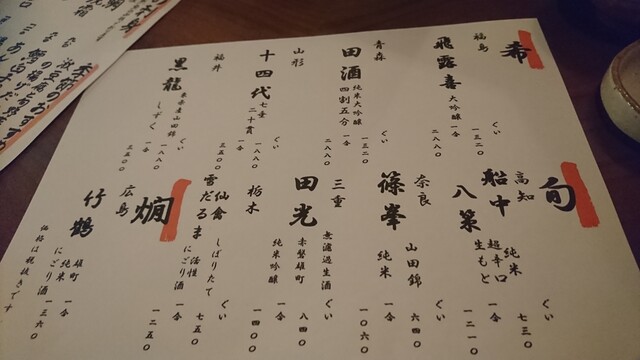 希
福島
飛露喜
大吟醸
ぐい 一三二〇
一合 二八八〇
青森
田酒
純米大吟醸
四割五分
ぐい 一三二〇
一合 二八八〇
山形
十四代
七垂
二十貫
ぐい
一合 一八八〇
福井
黒龍
しずく
ぐい 一八八〇
一合 三五〇〇
旬
高知
船中
八策
純米
超辛口
生もと
ぐい 七三〇
一合 一二一〇
奈良
篠峯
山田錦
純米
ぐい 六四〇
一合 一〇六〇
三重
田光
無濾過生酒
赤磐雄町
純米吟醸
ぐい 八四〇
一合 一四〇〇
栃木
仙禽
雪だるま
しぼりたて
活性
にごり酒
ぐい 七五〇
一合 一二五〇
燗
広島
竹鶴
雄町
純米
にごり酒
一合 一三六〇
価格は税抜きです